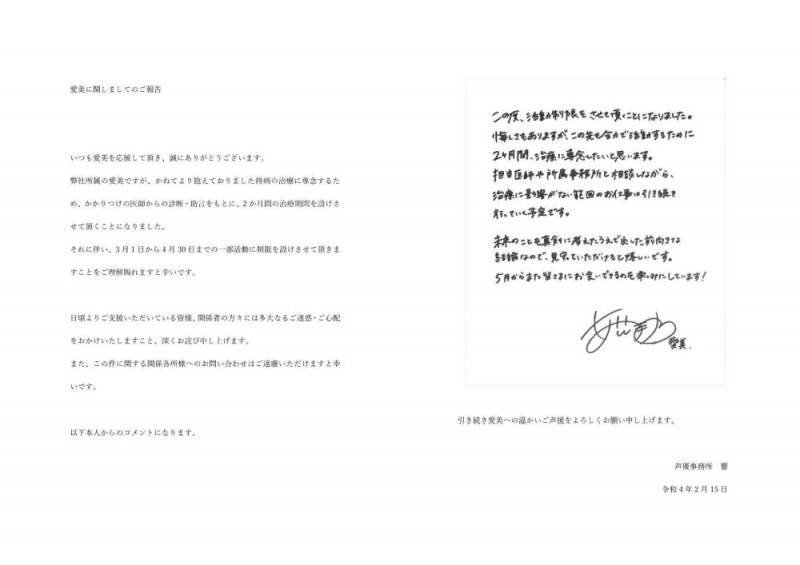 愛美に関しましてのご報告
いつも愛美を応援して頂き、誠にありがとうございます。
弊社所属の愛美ですが、かねてより抱えておりました持病の治療に専念するた
め、かかりつけの医師からの診断・助言をもとに、２か月間の治療期間を設けさせ
て頂くことになりました。
それに伴い、３月１日から４月 30 日までの一部活動に制限を設けさせて頂きま
すことをご理解賜れますと幸いです。
日頃よりご支援いただいている皆様、関係者の方々には多大なるご迷惑・ご心配
をおかけいたしますこと、深くお詫び申し上げます。
また、この件に関する関係各所様へのお問い合わせはご遠慮いただけますと幸
いです。
以下本人からのコメントになります。
この度、活動制限をさせて頂くことになりました。
悔しさもありますが、この先も全力で活動するために
2ヶ月間、治療に専念したいと思います。
担当医師や所属事務所と相談しながら、
治療に影響がない範囲のお仕事は引き続き
行っていく予定です。
未来のことも真剣に考えたうえで出した前向きな
結論なので、見守っていただけると嬉しいです。
5月からまた皆さまにお会いできるのを楽しみにしています!
愛美.
引き続き愛美への温かいご声援をよろしくお願い申し上げます。
声優事務所　響
令和４年２月 15 日